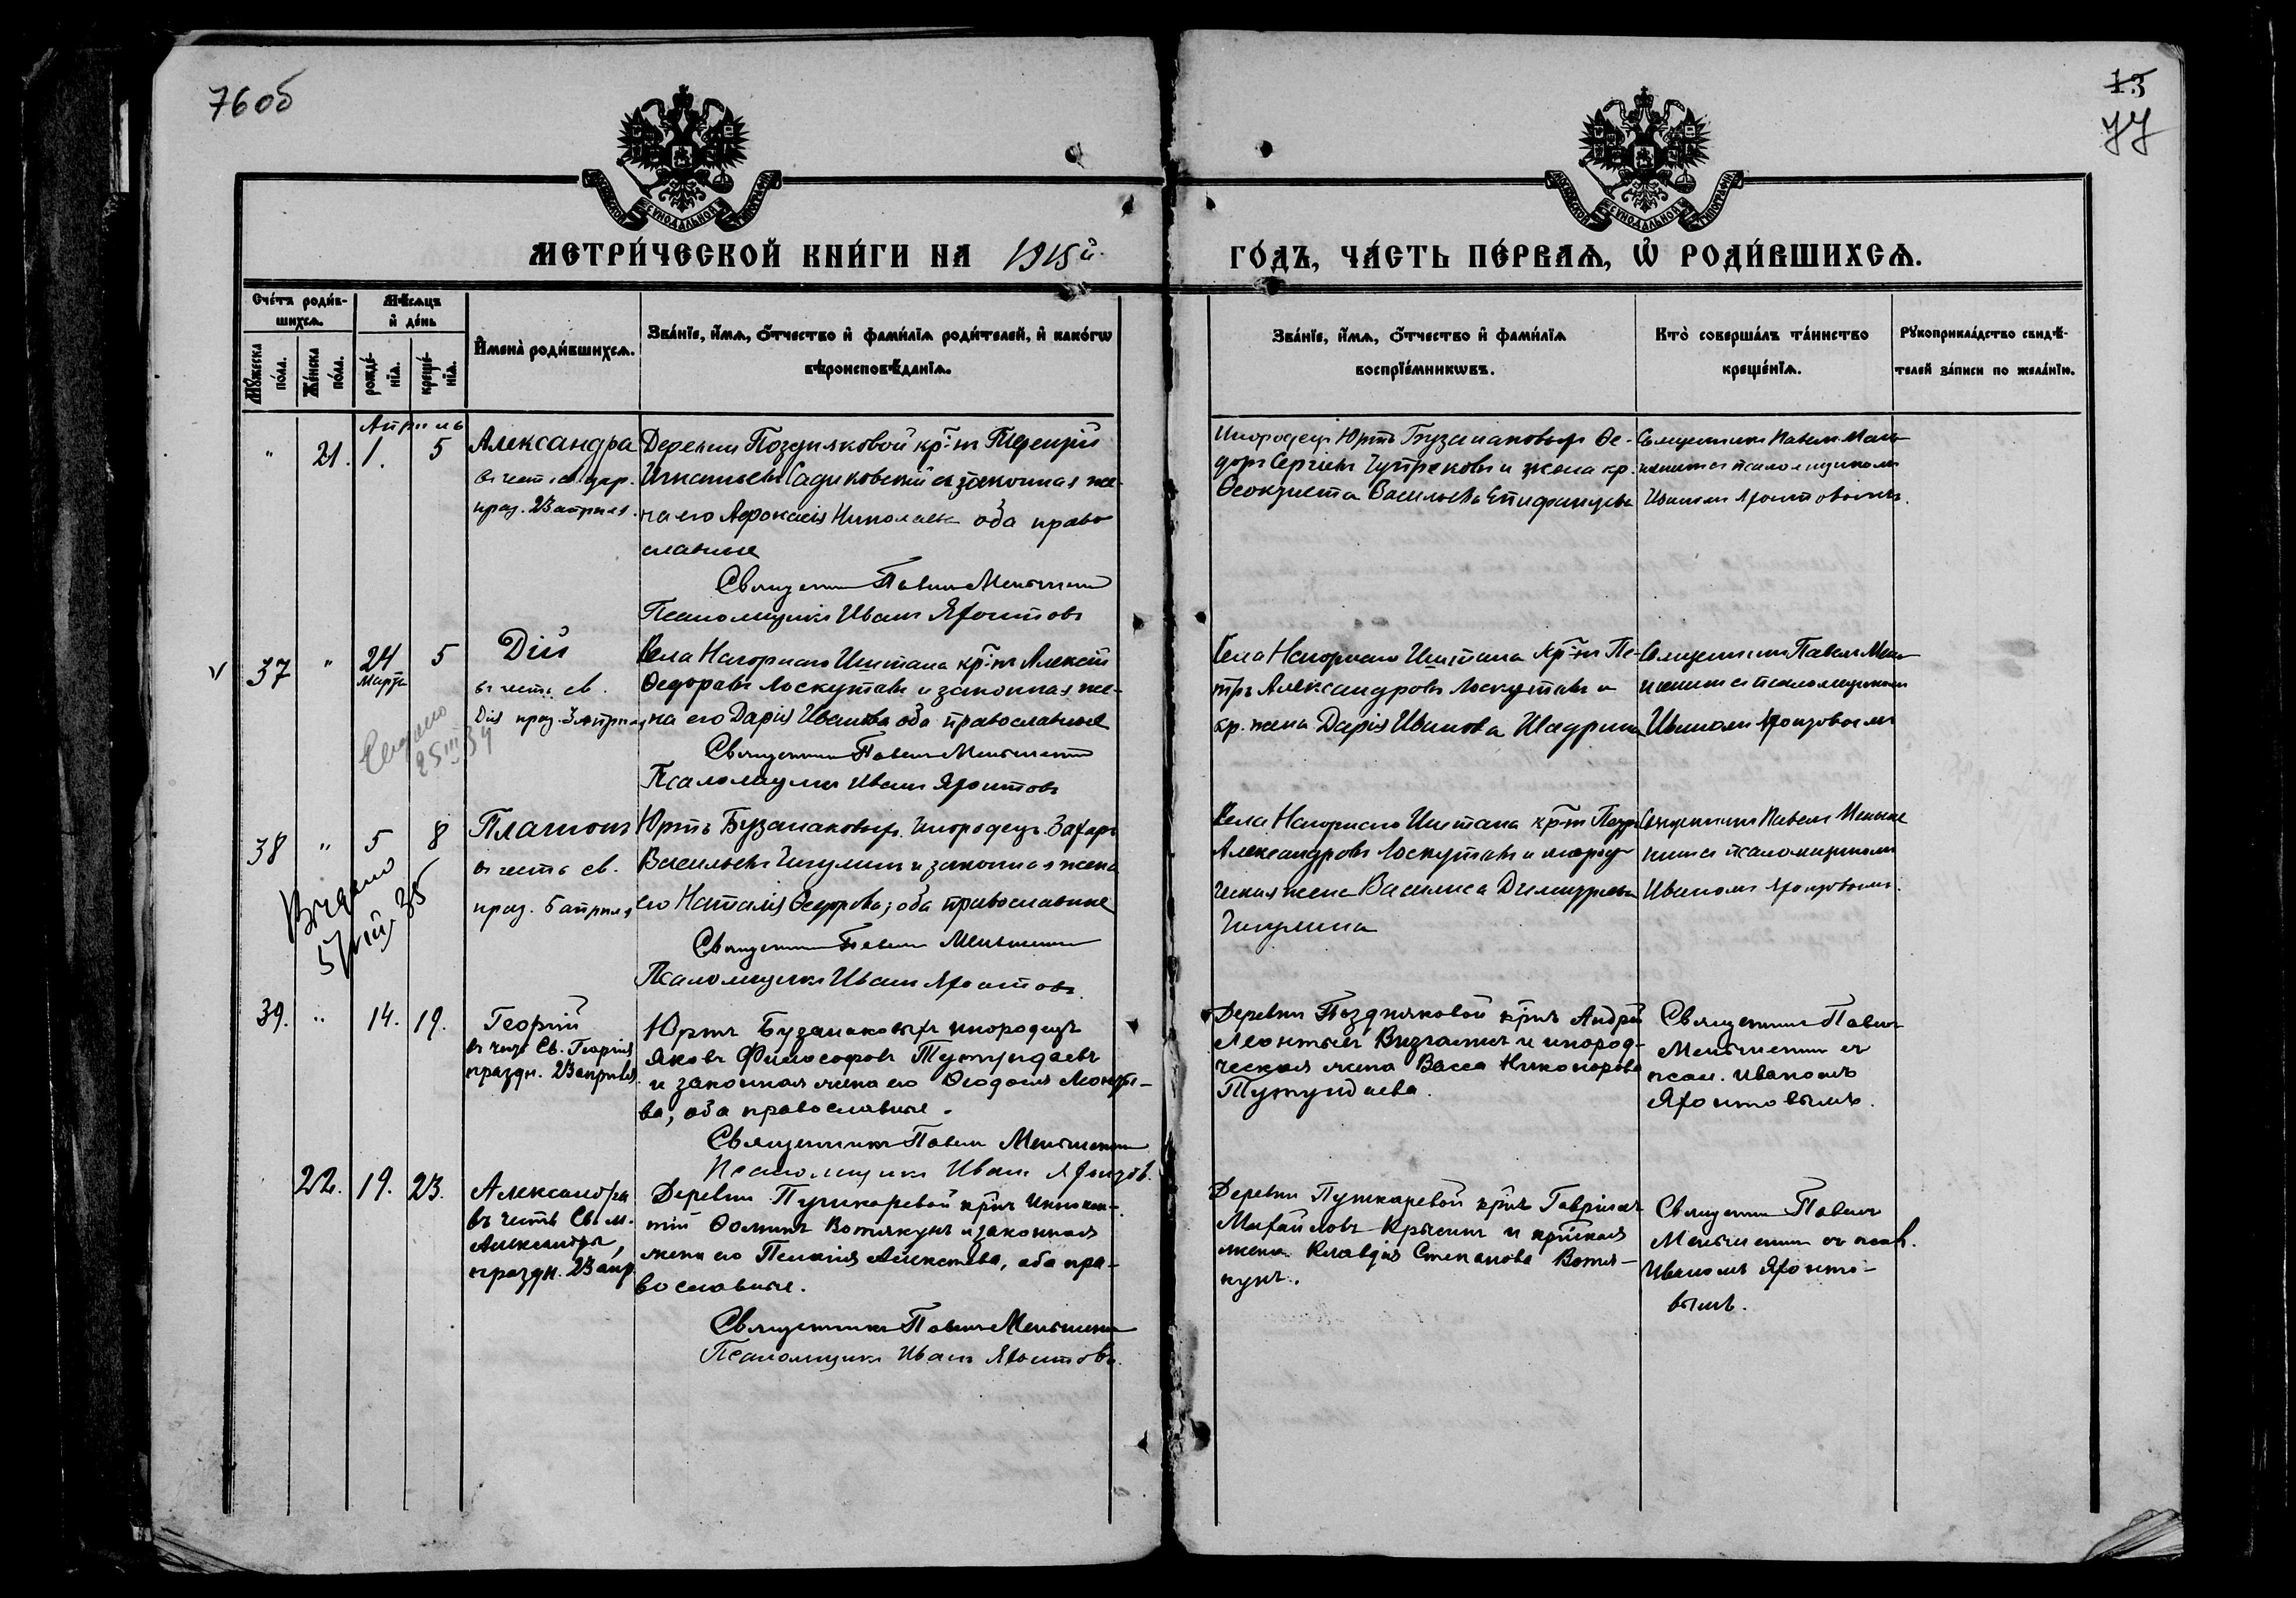 76 об
13
77
МОСКОВСКОЙ СѴНОДАЛЬНОЙ ТИПОГРАФИ
МОСКОВСКОЙ СѴНОДАЛЬНОЙ ТИПОГРАФИ
МЕТРИ́ЧЕСКОЙ КНИ́ГИ НА 1915й
ГО́ДЪ, ЧА́СТЬ ПЕ́РВАѦ, Ѡ РОДИ́ВШИХСѦ.
Сче́тъ роди́в-
шихсѧ.
Мꙋ́жеска по́ла.
Же́нска по́ла.
Мѣ́сѧцъ
и де́нь
рожде́-
нїѧ.
креще́-
нїѧ.
Имена̀ роди́вшихсѧ.
Зва́нїе, и́мѧ, о́тчество и фами́лїѧ роди́телей, и како́гѡ
вѣроисповѣ́данїѧ.
Зва́нїе, и́мѧ, о́тчество и фами́лїѧ
воспрїе́мникѡвъ.
Кто̀ соверша́лъ та́инство
креще́нїѧ.
Рꙋкоприкла́дство свидѣ́-
телей за́писи по жела́нїю.
Апрель
" 21. 1. 5
Александра
въ честь св. цар.
праз. 23 апреля.
Деревни Поздняковой кр-нъ Терентiй
Игнатьевъ Садиковскiй и законная же-
на его Афанасiя Николаева оба право
славные
Священник Павелъ Меньшенин
Псаломщикъ Иванъ Яхонтовъ
Инородецъ Юртъ Бузанаковыхъ Фе-
доръ Сергѣевъ и жена кр.
Феоктиста Васильева Епифанцева
Священникъ Павелъ Мень-
шенинъ с псаломщикомъ
Иваномъ Яхонтовымъ.
v 37 " 24 Марта 5
Дiй
въ честь св.
Дiя праз. 3 апреля
25 III 34
Села Нагорнаго Иштана кр-нъ Алексѣй
Федоровъ Лоскутовъ и законная же-
на его Дарiя Иванова оба православные
Священникъ Павелъ Меньшенин
Псаломщикъ Иванъ Яхонтовъ
Села Нагорнаго Иштана кр-нъ Пе-
тръ Александровъ Лоскутовъ и
кр. жена Дарiя Иванова Шадрина
Священникъ Павелъ Мень-
шенинъ с псаломщикомъ
Иваномъ Яхонтовымъ
38 " 5 8
Платонъ
въ честь св.
праз. 5 апреля
Выдано
5/VIII 35
Юртъ Бузанаковыхъ инородецъ Захаръ
Васильевъ Чигулинъ и законная жена
его Наталiя Федорова; оба православные
Священникъ Павелъ Меньшенин
Псаломщикъ Иванъ Яхонтовъ.
Села Нагорнаго Иштана кр-нъ Петръ
Александровъ Лоскутовъ и инород-
ческая жена Василиса Димитриева
Чигулина
Священникъ Павелъ Меньше
нинъ с псаломщикомъ
Иваномъ Яхонтовымъ.
39. " 14. 19.
Георгiй
въ честь Св. Георгiя
праздн. 23 апреля
Юртъ Бузанаковыхъ инородецъ
Яковъ Философовъ Тутундаевъ
и законная жена его Феодосiя Леонтье-
ва, оба православные.
Священникъ Павелъ Меньшенин
Псаломщикъ Иванъ Яхонтовъ.
Деревни Поздняковой кр-нъ Андрей
Леонтьевъ и инород-
ческая жена Васса Никонорова
Тутундаева.
Священникъ Павелъ
Меньшенинъ съ
псал. Иваномъ
Яхонтовымъ.
22. 19. 23.
Александра
въ честь Св. м.
Александры,
праздн. 23 апр.
Деревни Пушкаревой кр-нъ Иннокен-
тiй Фоминъ Вотякунъ и законная
жена его Пелагiя Алексѣева, оба пра-
вославные.
Священникъ Павелъ Меньшенин
Псаломщикъ Иванъ Яхонтовъ.
Деревни Пушкаревой кр-нъ Гаврiилъ
Михайловъ и кр-ская
жена Клавдiя Степанова Вотя-
кунъ.
Священникъ Павелъ
Меньшенинъ съ псал.
Иваномъ Яхонто-
вымъ.